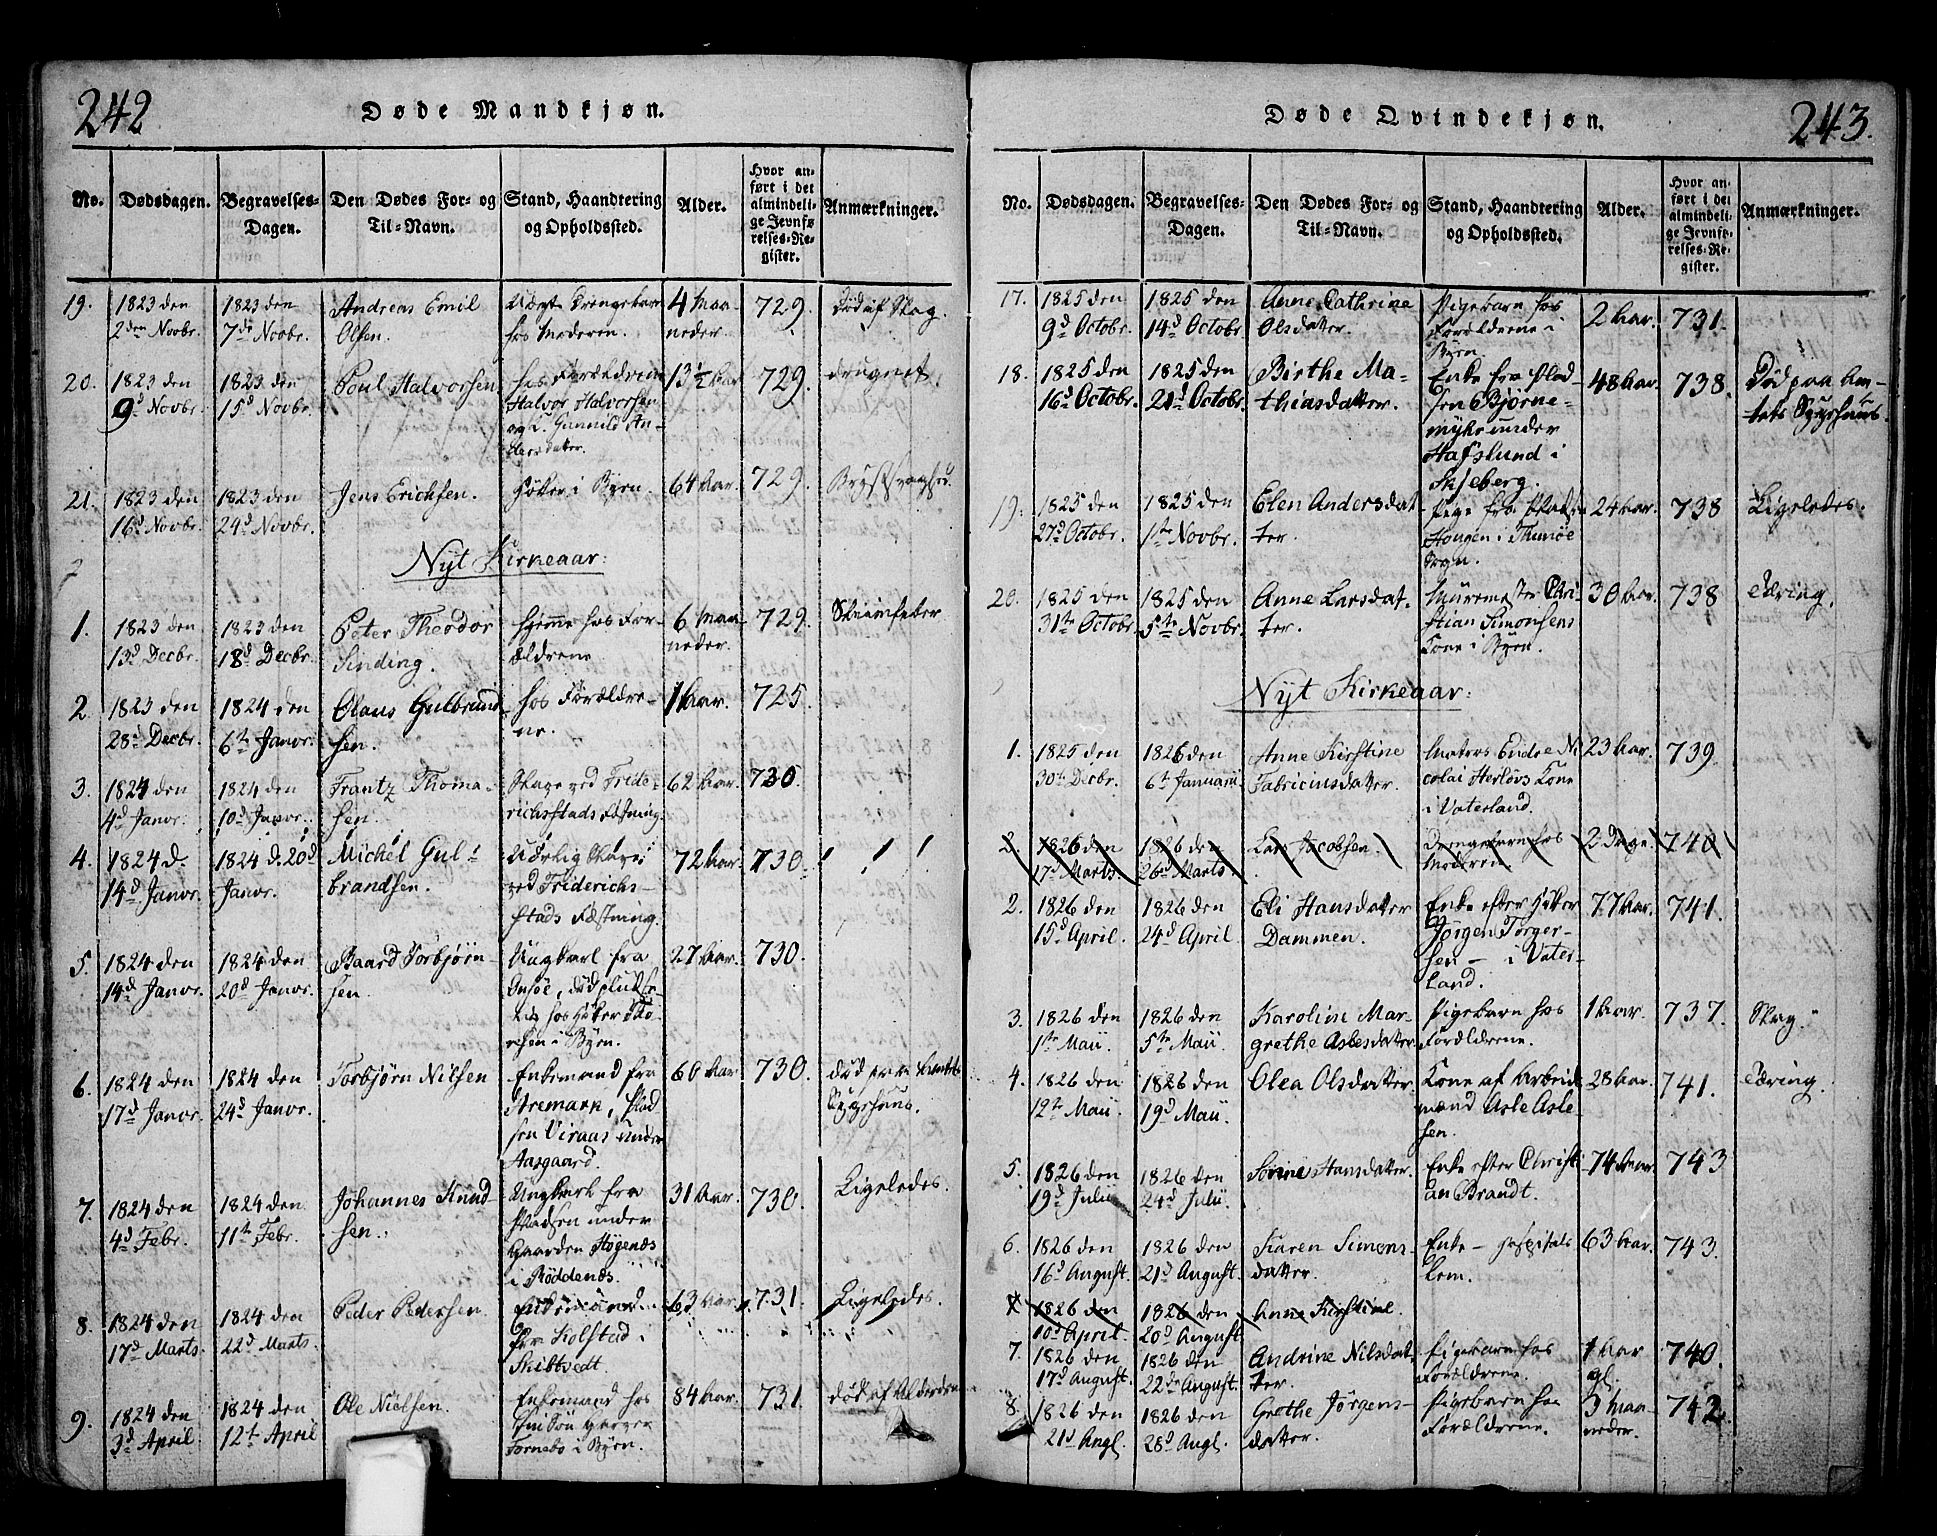 242
Døde Mandkjøn.
No.
Dødsdagen.
Begravelses-
Dagen.
Den Dødes For- og
Til-Navn.
Stand, Haandtering
og Opholdssted.
Alder.
Hvor an-
ført i det
almindeli-
ge Jevnfø-
relses-Re-
gister.
Anmærkninger.
19.
1823 den
2den Novbr.
1823 den
7de Novbr.
Andreas Emil
Olsen.
Uægte Drengebarn
hos Moderen.
4 Maa-
neder.
729.
Død af Slag.
20.
1823 den
9d Novbr.
1823 den
15d Novbr.
Poul Halvorsen
hos Forældrene
Halvor Halvorsen
og Gunnild An-
dersdatter.
13½ Aar
729.
druknet.
21.
1823 den
16d Novbr.
1823 den
24d Novbr.
Jens Erichsen.
Høker i Byen.
64 Aar.
729.
Brystsvaghed.
Nyt Kirkeaar:
1.
1823 den
13d Decbr.
1823 den
18d Decbr.
Peter Theodor
Sinding.
hjemme hos For-
ældrene
6 Maa-
neder.
729.
2.
1823 den
28d Decbr.
1824 den
6te Janvr.
Olaus Gulbrand-
sen.
hos Forældre-
ne.
1 Aar.
725.
3.
1824 den
4d Janvr.
1824 den
10d Janvr.
Frantz Thoma-
sen.
Slave ved Fride-
richsstads Fæstning.
62 Aar.
730.
4.
1824 d.
14d Janvr.
1824 d. 20d
Janvr.
Michel Gul-
brandsen.
Uærlig Slave
ved Friderichs-
stads Fæstning.
72 Aar.
730.
5.
1824 den
14d Janvr.
1824 den
20d Janvr.
Baard Torbjørn-
sen.
Ungkarl fra
Onsøe, død pludse-
lig hos Høker Tho-
resen i Byen.
27 Aar.
730.
6.
1824 den
17d Janvr.
1824 den
24d Janvr.
Torbjørn Nilsen
Enkemand fra
Aremark, Plad-
sen Viraas under
Aasgaard.
60 Aar
730.
død paa Amtets
Sygehuus.
7.
1824 den
4d Febr.
1824 den
11te Febr.
Johannes Knud-
sen.
Ungkarl fra
Pladsen under
Gaarden Høgenæs
i Røddenæs.
31 Aar.
730.
Ligeledes.
8.
1824 den
17d Marts.
1824 den
22d Marts.
Peder Pedersen.
Enkemand
fra Kolstad i
Skibtvedt.
63 Aar.
731.
Ligeledes.
9.
1824 den
3d April
1824 den
12te April
Ole Nielsen.
Enkemand hos
sin Søn
Tornebo i Byen.
84 Aar.
731.
død af Alderdom
243.
Døde Qvindekjøn.
No.
Dødsdagen.
Begravelses-
Dagen.
Den Dødes For- og
Til-Navn.
Stand, Haandtering
og Opholdssted.
Alder.
Hvor an-
ført i det
almindeli-
ge Jevnfø-
relses-Re-
gister.
Anmærkninger.
17.
1825 den
9d Octobr.
1825 den
14d Octobr.
Anne Cathrine
Olsdatter.
Pigebarn hos
Forældrene i
Byen.
2 Aar.
731.
18.
1825 den
16d Octobr.
1825 den
21d Octobr.
Birthe Ma-
thiasdatter.
Enke fra Plad-
sen Bjørne-
myhr under
Hafslund i
Skjeberg.
48 Aar.
738.
Død paa Am-
tets Sygehuus.
19.
1825 den
27d Octobr.
1825 den
1ste Novbr.
Elen Andersdat-
ter.
Pige fra Pladsen
Hougen i Thunøe
Sogn.
24 Aar.
738
Ligeledes.
20.
1825 den
31te Octobr.
1825 den
5te Novbr.
Anne Larsdat-
ter.
Muremester Chri-
stian Simonsens
Kone i Byen.
30 Aar.
738
Tæring.
Nyt Kirkeaar:
1.
1825 den
30te Decbr.
1826 den
6te Januarii
Anne Kirstine
Fabriciusdatter.
Matros Endre Ni-
colai Herløvs Kone
i Vaterland.
23 Aar.
739.
2.
1826 den
17d Marts.
1826 den
26d Marts.
Lars Jacobsen.
Drengebarn hos
Modren
2 Dage.
740
2.
1826 den
15d April.
1826 den
24d April.
Eli Hansdatter
Dammen.
Enke efter Høker
Jørgen Torger-
sen - i Vater-
land.
77 Aar.
741.
3.
1826 den
1ste Maii.
1826 den
5te Maii.
Karolin Mar-
grethe Aslesdatter
Pigebarn hos
Forældrene.
1 Aar.
737.
Slag.
4.
1826 den
12te Maii.
1826 den
19d Maii.
Olea Olsdatter
Kone af Arbeids-
mand Asle Asle-
sen.
28 Aar.
741.
Tæring.
5.
1826 den
19d Julii
1826 den
24d Julii.
Sørine Hansdatter.
Enke efter Christi-
an Brandt.
74 Aar.
743
6.
1826 den
16d August.
1826 den
21d August.
Karen Simons-
datter.
Enke - Hospitals
Lem.
63 Aar.
743.
1826 den
10d April.
1826 den
20d August.
Anne Kirstine.
7.
1826 den
17d August.
1826 den
22de August.
Andrine Nilsdat-
ter.
Pigebarn hos
Forældrene.
1 Aar
gl.
740.
8.
1826 den
21d Augl.
1826 den
28d Augl.
Grethe Jørgens-
datter.
Pigebarn hos
Forældrene.
3 Maa-
neder.
742.